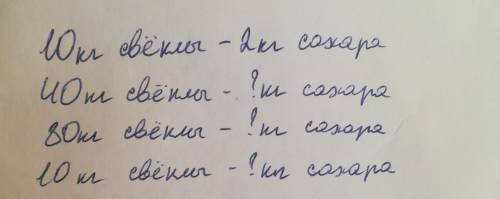 10кг свёклы - 2кг сахара
40кг свёклы - ?кг сахара
80кг свёклы - ?кг сахара
10кг свёклы - ?кг сахара